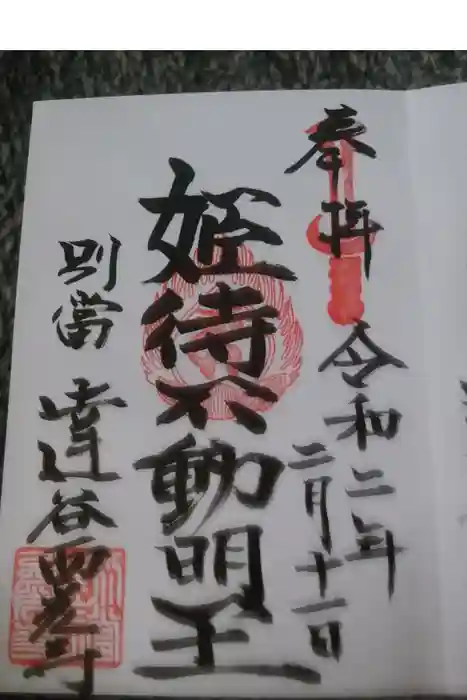 奉拝
令和二年
二月十一日
姫待不動明王
別當
達谷西光寺